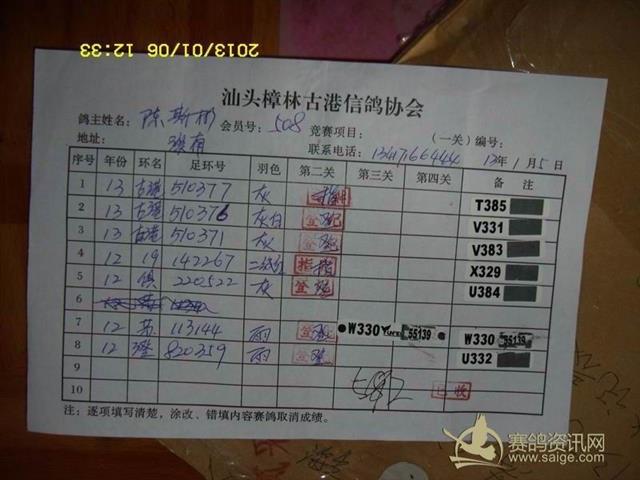 2013/01/06 12:33
汕头樟林古港信鸽协会
鸽主姓名: 陈斯彬 会员号: 508 竞赛项目: (一关)编号:
地址: 联系电话: 13417166444 13年1月5日
序号 年份 环名 足环号 羽色 第二关 第三关 第四关 备 注
1 13 古港 510377 灰 T385
2 13 古港 510376 灰白 V331
3 13 古港 510371 灰 V383
4 12 19 142267 X329
5 12 220522 灰 U384
6
7 12 113144 雨 W330 55139 W330 55139
8 12 820359 雨 U332
9
10 已收
注: 逐项填写清楚, 涂改、错填内容赛鸽取消成绩。
赛鸽资讯网
www.saige.com